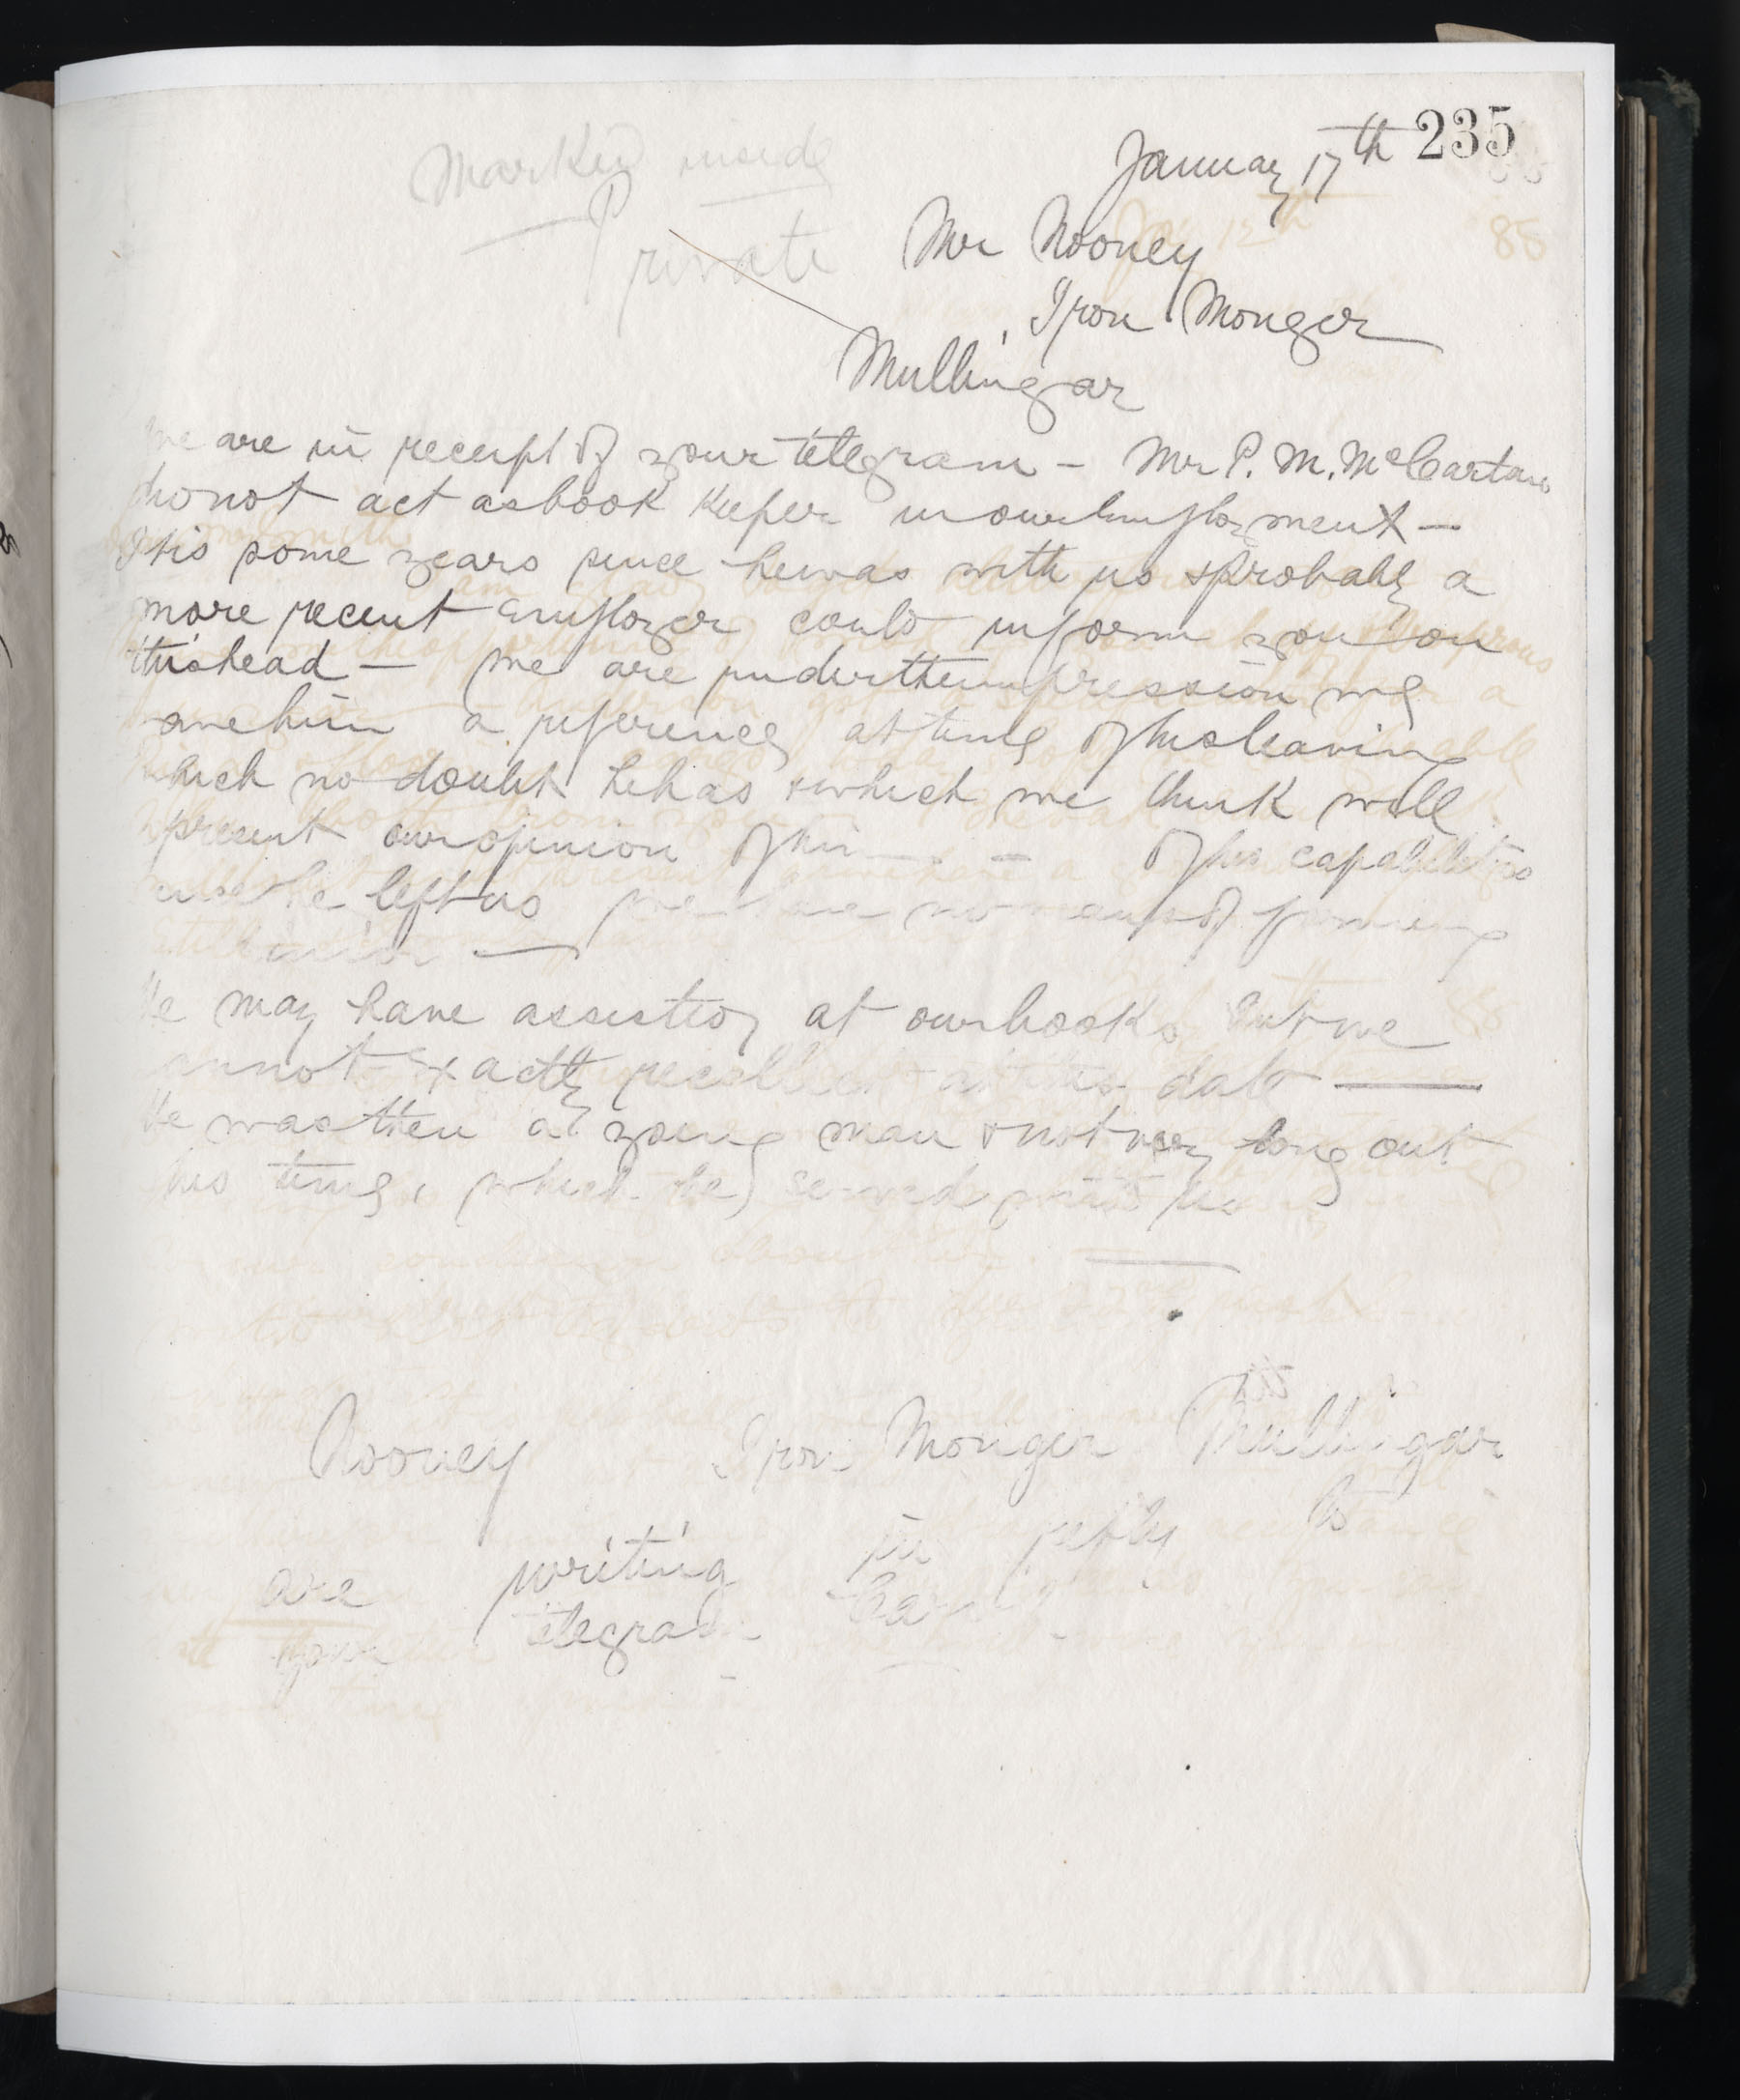 235
January 17th
Marked inside
Private
Mr Rooney
Iron Monger
Mullingar
We are in receipt of your telegram - Mr P. M. McCartan
did not act as book keeper in our Employment —
It is some years since he was with us & probably a
more recent Employer could inform you on
this head — We are under the impression we
gave him a reference at time of his leaving
which no doubt he has & which we think will
present our opinion of him - of his capabilities
since he left us we have no means of forming
He may have assisted at our books but we
cannot Exactly recollect at this date —
He was then a young man & not very long out
his time, which he served with us
Rooney Iron Monger Mullingar
are writing in reply to
your telegram